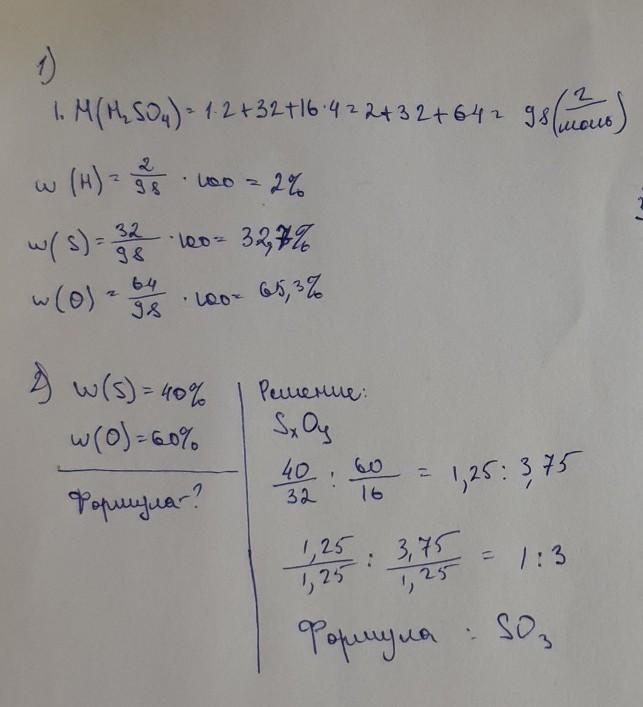 1)
1. M(H₂SO₄) = 1·2+32+16·4=2+32+64= 98(г/моль)
w (H) = 2/98 · 100 = 2%
w(S)= 32/98 ·100= 32,7%
w(O) = 64/98 ·100= 65,3%
2) w(S)=40%
w(O)=60%
Формула-?
Решение:
SxOy
40/32 : 60/16 = 1,25 : 3,75
1,25/1,25 : 3,75/1,25 = 1:3
Формула : SO₃